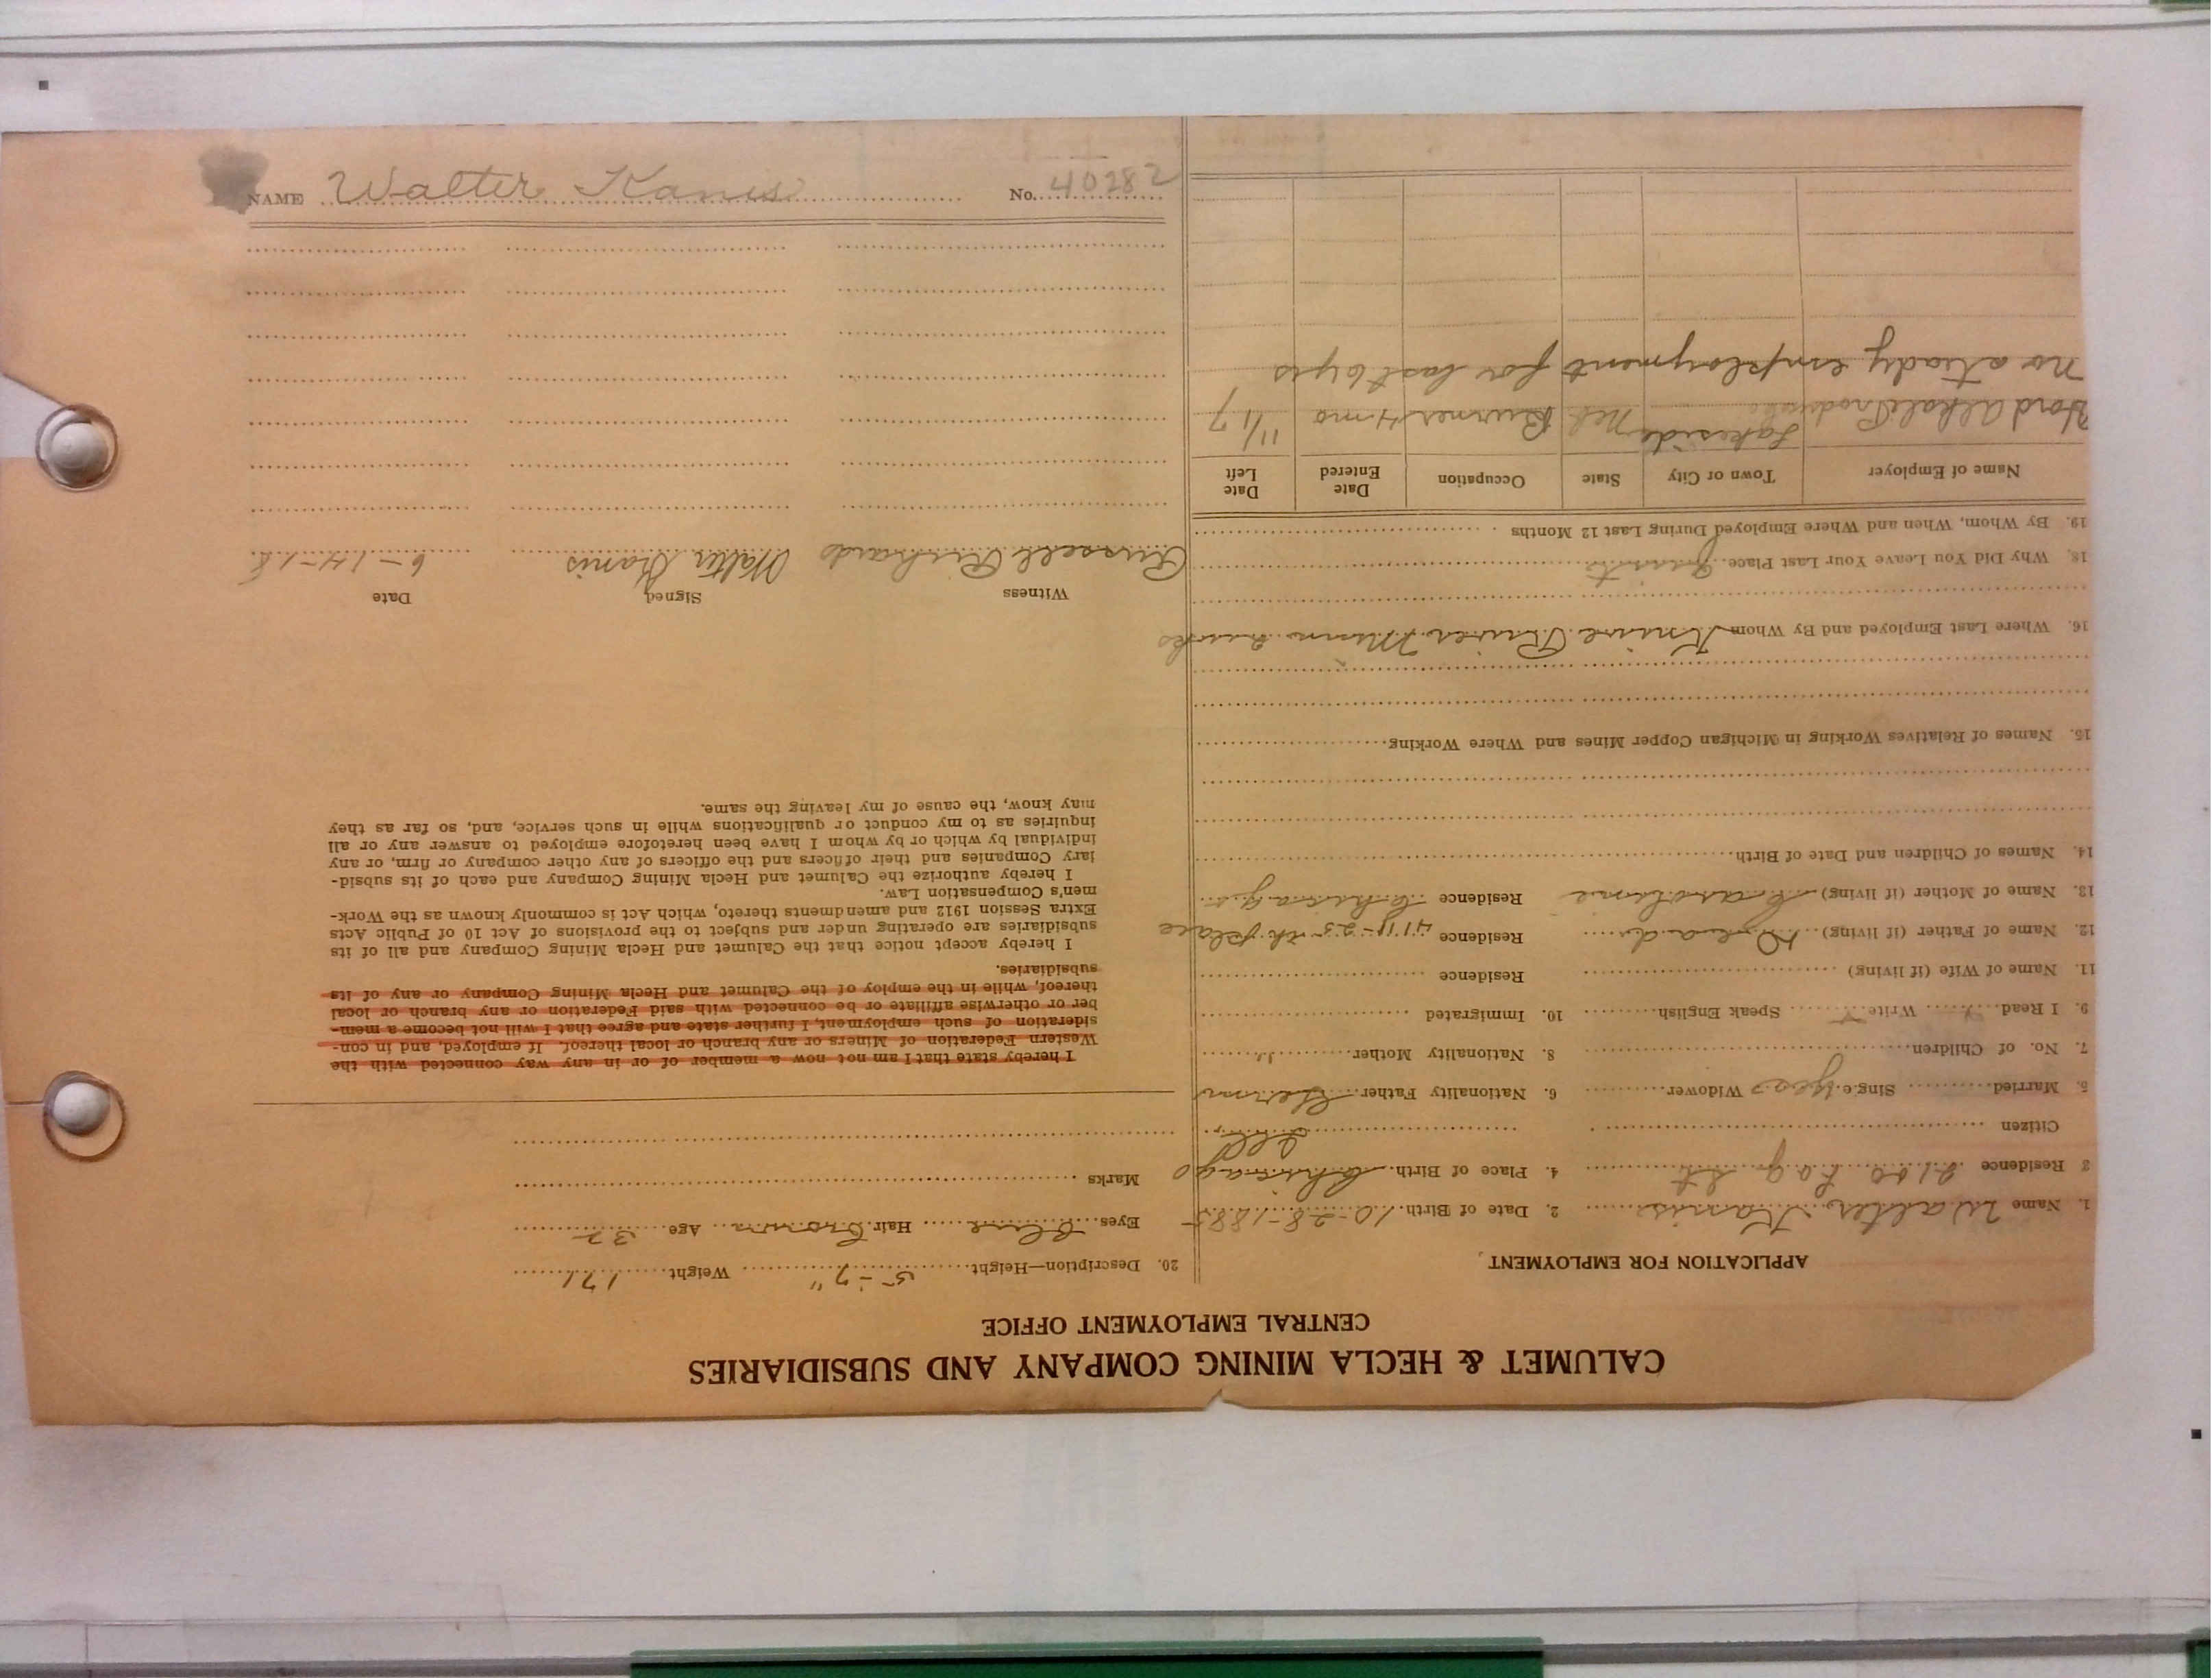 CALUMET & HECLA MINING COMPANY AND SUBSIDIARIES
CENTRAL EMPLOYMENT OFFICE
APPLICATION FOR EMPLOYMENT
1. Name Walter Kanis 2. Date of Birth 10-28-1885
3 Residence 2100 Log St 4. Place of Birth Chicago
Citizen Ill
5. Married Single Yes Widower 6. Nationality Father Germ
7. No. of Children 8. Nationality Mother "
9. I Read Write Speak English 10. Immigrated
11. Name of Wife (if living) Residence
12. Name of Father (if living) Residence 4111-25th place
13. Name of Mother (if living) Caroline Residence Chicago
14. Names of Children and Date of Birth
15. Names of Relatives Working in Michigan Copper Mines and Where Working
16. Where Last Employed and By Whom Knive River Minn
18. Why Did You Leave Your Last Place quit
19. By Whom, When and Where Employed During Last 12 Months
Name of Employer Town or City State Occupation Date Entered Date Left
Hord Alkali Products Lakeside Neb Burner 4 mo 11/17
No steady employment for last 6 yrs
20. Description—Height 5-7" Weight 171
Eyes Blue Hair Brown Age 32
Marks
I hereby state that I am not now a member of or in any way connected with the
Western Federation of Miners or any branch or local thereof. If employed, and in con-
sideration of such employment, I further state and agree that I will not become a mem-
ber or otherwise affiliate or be connected with said Federation or any branch or local
thereof, while in the employ of the Calumet and Hecla Mining Company or any of its
subsidiaries.
I hereby accept notice that the Calumet and Hecla Mining Company and all of its
subsidiaries are operating under and subject to the provisions of Act 10 of Public Acts
Extra Session 1912 and amendments thereto, which Act is commonly known as the Work-
men's Compensation Law.
I hereby authorize the Calumet and Hecla Mining Company and each of its subsid-
iary Companies and their officers and the officers of any other company or firm, or any
individual by which or by whom I have been heretofore employed to answer any or all
inquiries as to my conduct or qualifications while in such service, and, so far as they
may know, the cause of my leaving the same.
Witness Signed Date
Russell Richards Walter Kanis 6-14-18
NAME Walter Kanis No. 40282